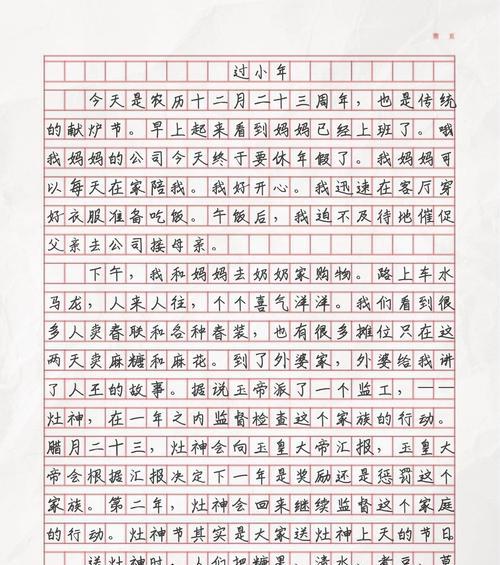 过小年
今天是农历十二月二十三周年，也是传统
的献炉节。早上起来看到妈妈已经上班了。哦
我妈妈的公司今天终于要休年假了。我妈妈可
以每天在家陪我。我好开心。我迅速在客厅穿
好衣服准备吃饭。午饭后，我迫不及待地催促
父亲去公司接母亲。
下午，我和妈妈去奶奶家购物。路上车水
马龙，人来人往，个个喜气洋洋。我们看到很
多人卖春联和各种春装，也有很多摊位只在这
两天卖麻糖和麻花。到了外婆家，外婆给我讲
了人王的故事。据说玉帝派了一个监工，——
灶神，在一年之内监督检查这个家族的行动。
腊月二十三，灶神会向玉皇大帝汇报，玉皇大
帝会根据汇报决定下一年是奖励还是惩罚这个
家族。第二年，灶神会回来继续监督这个家庭
的行动。灶神节其实是大家送灶神上天的节日
送灶神时，人们把糖果、清水、煮豆、草